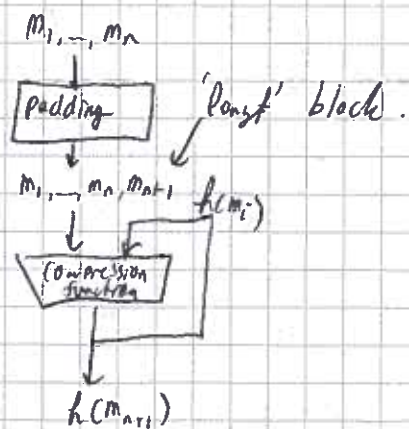 m₁, ..., mₙ
padding
'length' block.
m₁, ..., mₙ, mₙ₊₁
h(mᵢ)
compression
function
h(mₙ₊₁)